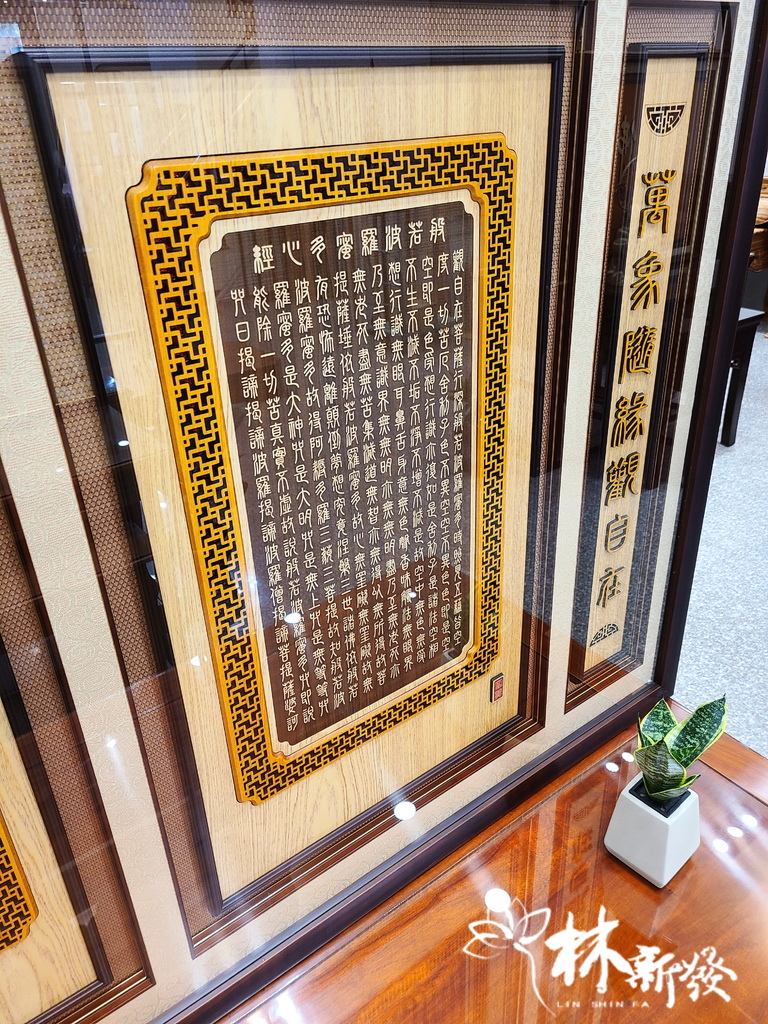 般若波羅蜜多心經
觀自在菩薩行深般若波羅蜜多時照見五蘊皆空
度一切苦厄舍利子色不異空空不異色色即是空
空即是色受想行識亦復如是舍利子是諸法空相
不生不滅不垢不淨不增不減是故空中無色無受
想行識無眼耳鼻舌身意無色聲香味觸法無眼界
乃至無意識界無無明亦無無明盡乃至無老死亦
無老死盡無苦集滅道無智亦無得以無所得故菩
提薩埵依般若波羅蜜多故心無罣礙無罣礙故無
有恐怖遠離顛倒夢想究竟涅槃三世諸佛依般若
波羅蜜多故得阿耨多羅三藐三菩提故知般若波
羅蜜多是大神咒是大明咒是無上咒是無等等咒
能除一切苦真實不虛故說般若波羅蜜多咒即說
咒曰揭諦揭諦波羅揭諦波羅僧揭諦菩提薩婆訶
萬象隨緣觀自在
林新發
LIN SHIN FA